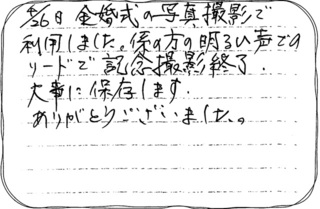 4/26日 金婚式の写真撮影で
利用しました。係の方の明るい声での
リードで記念撮影終了.
大事に保存します.
ありがとうございました。